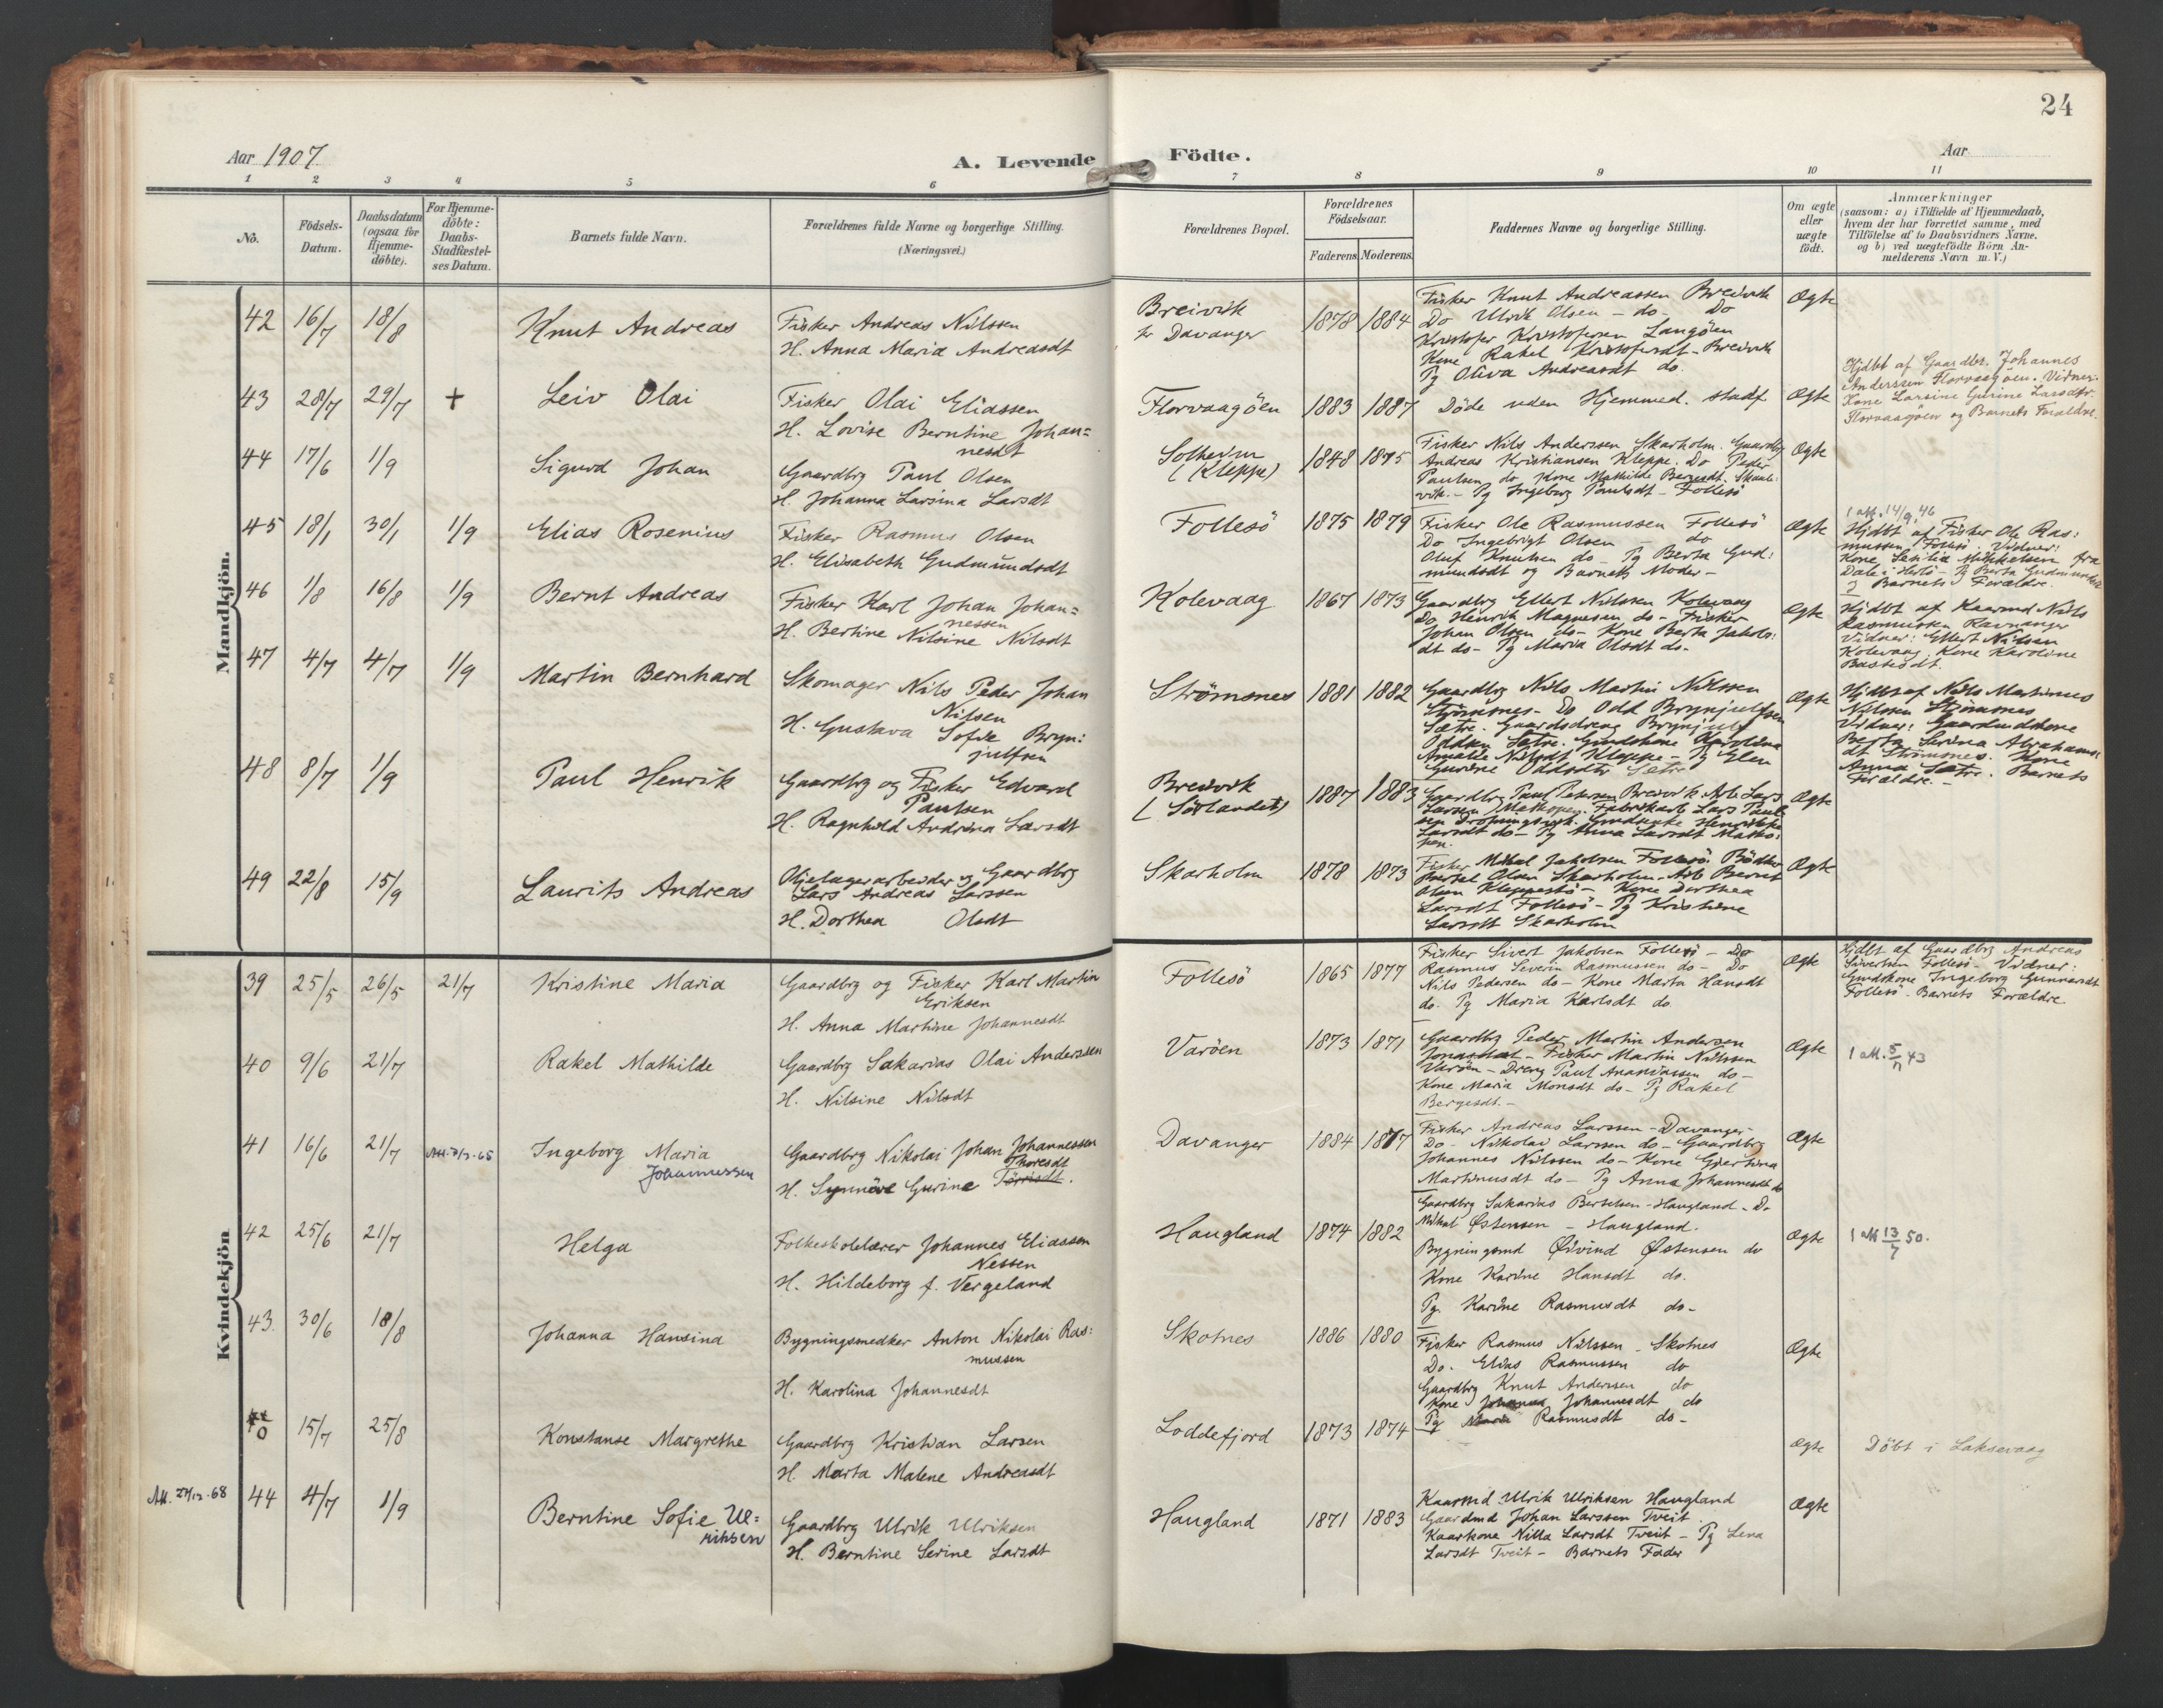 24
Aar 1907
A. Levende Födte.
Aar
1 2 3 4 5 6 7 8 9 10 11
No.
Födsels-Datum.
Daabsdatum (ogsaa for Hjemme-döbte).
For Hjemme-döbte: Daabs-Stadfæstel-ses Datum.
Barnets fulde Navn.
Forældrenes fulde Navne og borgerlige Stilling.
(Næringsvei.)
Forældrenes Bopæl.
Forældrenes Födselsaar.
Faderens Moderens
Faddernes Navne og borgerlige Stilling.
Om ægte eller uægte födt.
Anmærkninger
(saasom: a) i Tilfælde af Hjemmedaab,
hvem der har forrettet samme, med
Tilföielse af to Daabsvidners Navne.
og b) ved uægtefödte Börn An-
melderens Navn m. V.)
Mandkjön.
42 16/7 18/8 Knut Andreas
Fisker Andreas Nilssen
H. Anna Maria Andreasdt
Breivik
hr Davanger
1878 1884
Fisker Knut Andreassen Breivik
Do Ulrik Olsen - do - Do
Kristofer Kristofersen Langöen
Kone Rakel Kristofersdt - Breivik
Pg Oliva Andreasdt do.
Ægte
43 28/7 29/7 + Leiv Olai
Fisker Olai Eliassen
H. Lovise Berntine Johan=
nesdt
Florvaagöen 1883 1887
Döde uden Hjemmed. stadf
Ægte
Hjdbt af Gaardbr. Johannes
Anderssen Florvaagöen. Vidner:
Kone Larsine Gurine Larsdtr.
Florvaagöen og Barnets Forældre.
44 17/6 1/9 Sigurd Johan
Gaardbrg Paul Olsen
H. Johanna Larsina Larsdt
Solheim
(Kleppe)
1848 1875
Fisker Nils Anderssen Skarholm. Gaardbg
Andreas Kristiansen Kleppe. Do Peder
Paulsen do Kone Mathilde Bergesdt. Skaale:
vik. - Pg Ingeborg Paulsdt - Follesö
Ægte
45 18/1 30/1 1/9 Elias Rosenius
Fisker Rasmus Olsen
H. Elisabeth Gudmundsdt
Follesö 1875 1879
Fisker Ole Rasmussen Follesö
Do Ingebrigt Olsen - do
Oluf Knutsen do - Pg Berta Gud:
mundsdt og Barnets Moder -
Ægte
1 att. 14/9.46
Hjdbt af Fisker Ole Ras:
mussen Follesö. Vidner:
Kone Sesilia Mikkelsen fra
Dale i Herlö - Pg Berta Gudmundsdt
og Barnets Forældre.
46 1/8 16/8 1/9 Bernt Andreas
Fisker Karl Johan Johan=
nessen
H. Bertine Nilsine Nilsdt
Kolevaag 1867 1873
Gaardbrg Ellert Nilssen Kolevaag
Do Henrik Magnesen do - Fisker
Johan Olsen do - Kone Berta Jakobs:
dt do - Pg Maria Olsdt do.
Ægte
Hjdbt af Kaarmd Nils
Rasmussen Ravnanger
Vidner: Ellert Nilssen
Kolevaag. Kone Karoline
47 4/7 4/7 1/9 Martin Bernhard
Skomager Nils Peder Johan
Nilsen
H. Gustava Sofie Bryn:
julfsen
Strömsnes 1881 1882
Gaardbrg Nils Martin Nilssen
Strömsnes - Do Odd Brynjulfsen
Sætre. Gaardsdreng Brynjulf
Oddsen Sætre. Gmdskone Karolina
Amalie Nilsdt Kleppe - Pg Elen
Gurine Oddsdtr Sætre
Ægte
Hjdbt af Nils Martinus
Nilssen Strömsnes
Vidner: Gaardmdskone
Berta Serina Abrahams:
dt Strömsnes. Kone
Anna Sætre. Barnets
Forældre. -
48 8/7 1/9 Paul Henrik
Gaardbrg og Fisker Edvard
Paulsen
H. Ragnhild Andrina Larsdt
Breivik
(Sörlandet)
1887 1883
Gaardbrg Paul Petersen Breivik. Arb Lars
Larsen Mathopen. Fabrikarb Lars Paul
sen Gmdenke Henrikke
Larsdt do - Pg Anna Larsdt Matho:
pen.
Ægte
49 22/8 15/9 Laurits Andreas
Oljelagerarbeider og Gaardbrg
Lars Andreas Larssen
H. Dorthea Olsdt
Skarholm 1878 1873
Fisker Mikal Jakobsen Follesö. Bödker
Bertel Olsen Skarholm. Arb Bernt
Olsen Kleppestö - Kone Dorthea
Larsdt Follesö - Pg Kristine
Larsdt Skarholm
Ægte
Kvindekjön
39 25/5 26/5 21/7 Kristine Maria
Gaardbrg og Fisker Karl Martin
Eriksen
H. Anna Martine Johannesdt
Follesö 1865 1877
Fisker Sivert Jakobsen Follesö - Do
Rasmus Severin Rasmussen do - Do
Nils Pedersen do - Kone Marta Hansdt
do. Pg Maria Karlsdt do
Ægte
Hjdbt af Gaardbrg Andreas
Sivertsen Follesö - Vidner:
Gmdskone Ingeborg Gunnarsdt
Follesö - Barnets Forældre
40 9/6 21/7 Rakel Mathilde
Gaardbrg Sakarias Olai Anderssen
H. Nilsine Nilsdt
Varöen 1873 1871
Gaardbg Peder Martin Andersen
- Fisker Martin Nilssen
Varöen - Dreng Paul Ananiassen do -
Kone Maria Monsdt do - Pg Rakel
Bergesdt. -
Ægte
1 att. 5/11 43
41 16/6 21/7 Att. 7/3-65 Ingeborg Maria
Johannessen
Gaardbrg Nikolai Johan Johannessen
Thoresdt
H. Synnöve Gurine Törrisdt.
Davanger 1884 1877
Fisker Andreas Larssen - Davanger -
Do - Nikolai Larssen do - Gaardbrg
Johannes Nilssen do - Kone Gjertina
Martinusdt do - Pg Anna Johannesdt do
Ægte
42 25/6 21/7 Helga
Folkeskolelærer Johannes Eliassen
Nessen
H. Hildeborg f. Vergeland
Haugland 1874 1882
Gaardbrg Sakarias Bertelsen - Haugland - Do
Mikal Østensen - Haugland.
Bygningsmd Øivind Østensen do
Kone Karine Hansdt do.
Pg. Karine Rasmusdt do -
Ægte
1 att 13/7 50.
43 30/6 18/8 Johanna Hansina
Bygningsmedker Anton Nikolai Ras:
mussen
H. Karolina Johannesdt
Skotnes 1886 1880
Fisker Rasmus Nilssen - Skotnes
Do. Elias Rasmussen do
Gaardbrg Knut Anderssen do
Kone Johanna Johannesdt do
Pg Rasmusdt do -
Ægte
0 15/7 25/8 Konstanse Margrethe
Gaardbrg Kristian Larsen
H. Marta Malene Andreasdt
Loddefjord 1873 1874
Ægte
Döbt i Laksevaag
Att. 27/12-68
44 4/7 1/9 Berntine Sofie Ul=
riksen
Gaardbrg Ulrik Ulriksen
H. Berntine Serine Larsdt
Haugland 1871 1883
Kaarmd Ulrik Ulriksen Haugland
Gaardmd Johan Larssen Tveit
Kaarkone Nilla Larsdt Tveit - Pg Lena
Larsdt Tveit - Barnets Fader
Ægte